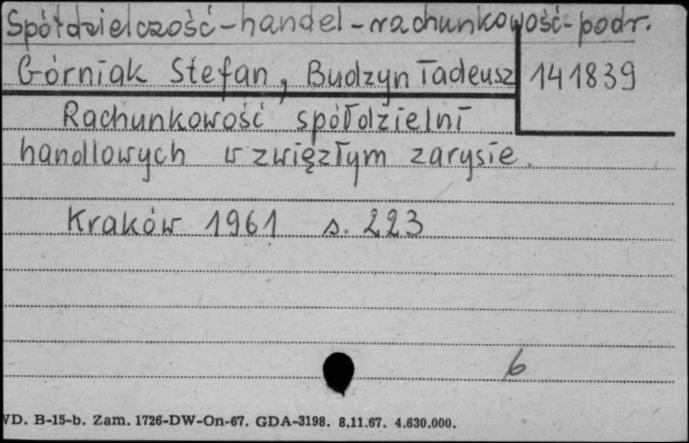 Spółdzielczość-handel-rachunkowość-podr.
Górniak Stefan, Budzyn Tadeusz 141839
Rachunkowość spółdzielni
handlowych w zwięzłym zarysie.
Kraków 1961 s. 223
6
VD. B-15-b. Zam. 1726-DW-On-67. GDA-3198. 8.11.67. 4.630.000.